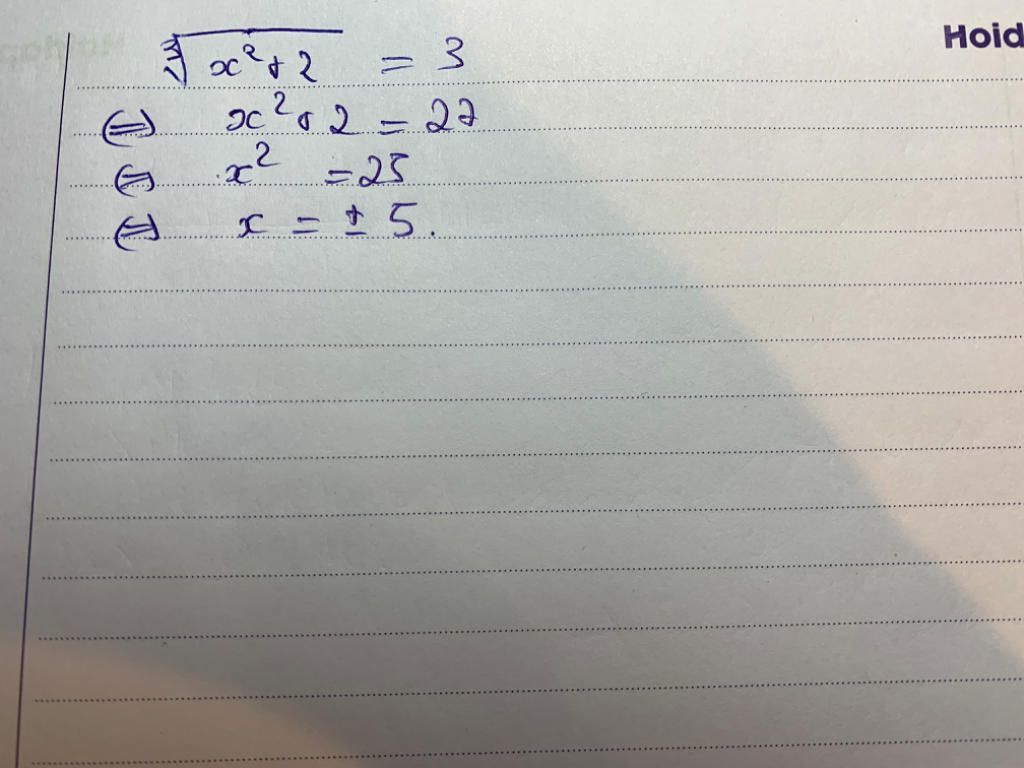 Hoid
∛(x²+2) = 3
⇔ x²+2 = 27
⇔ x² = 25
⇔ x = ± 5.